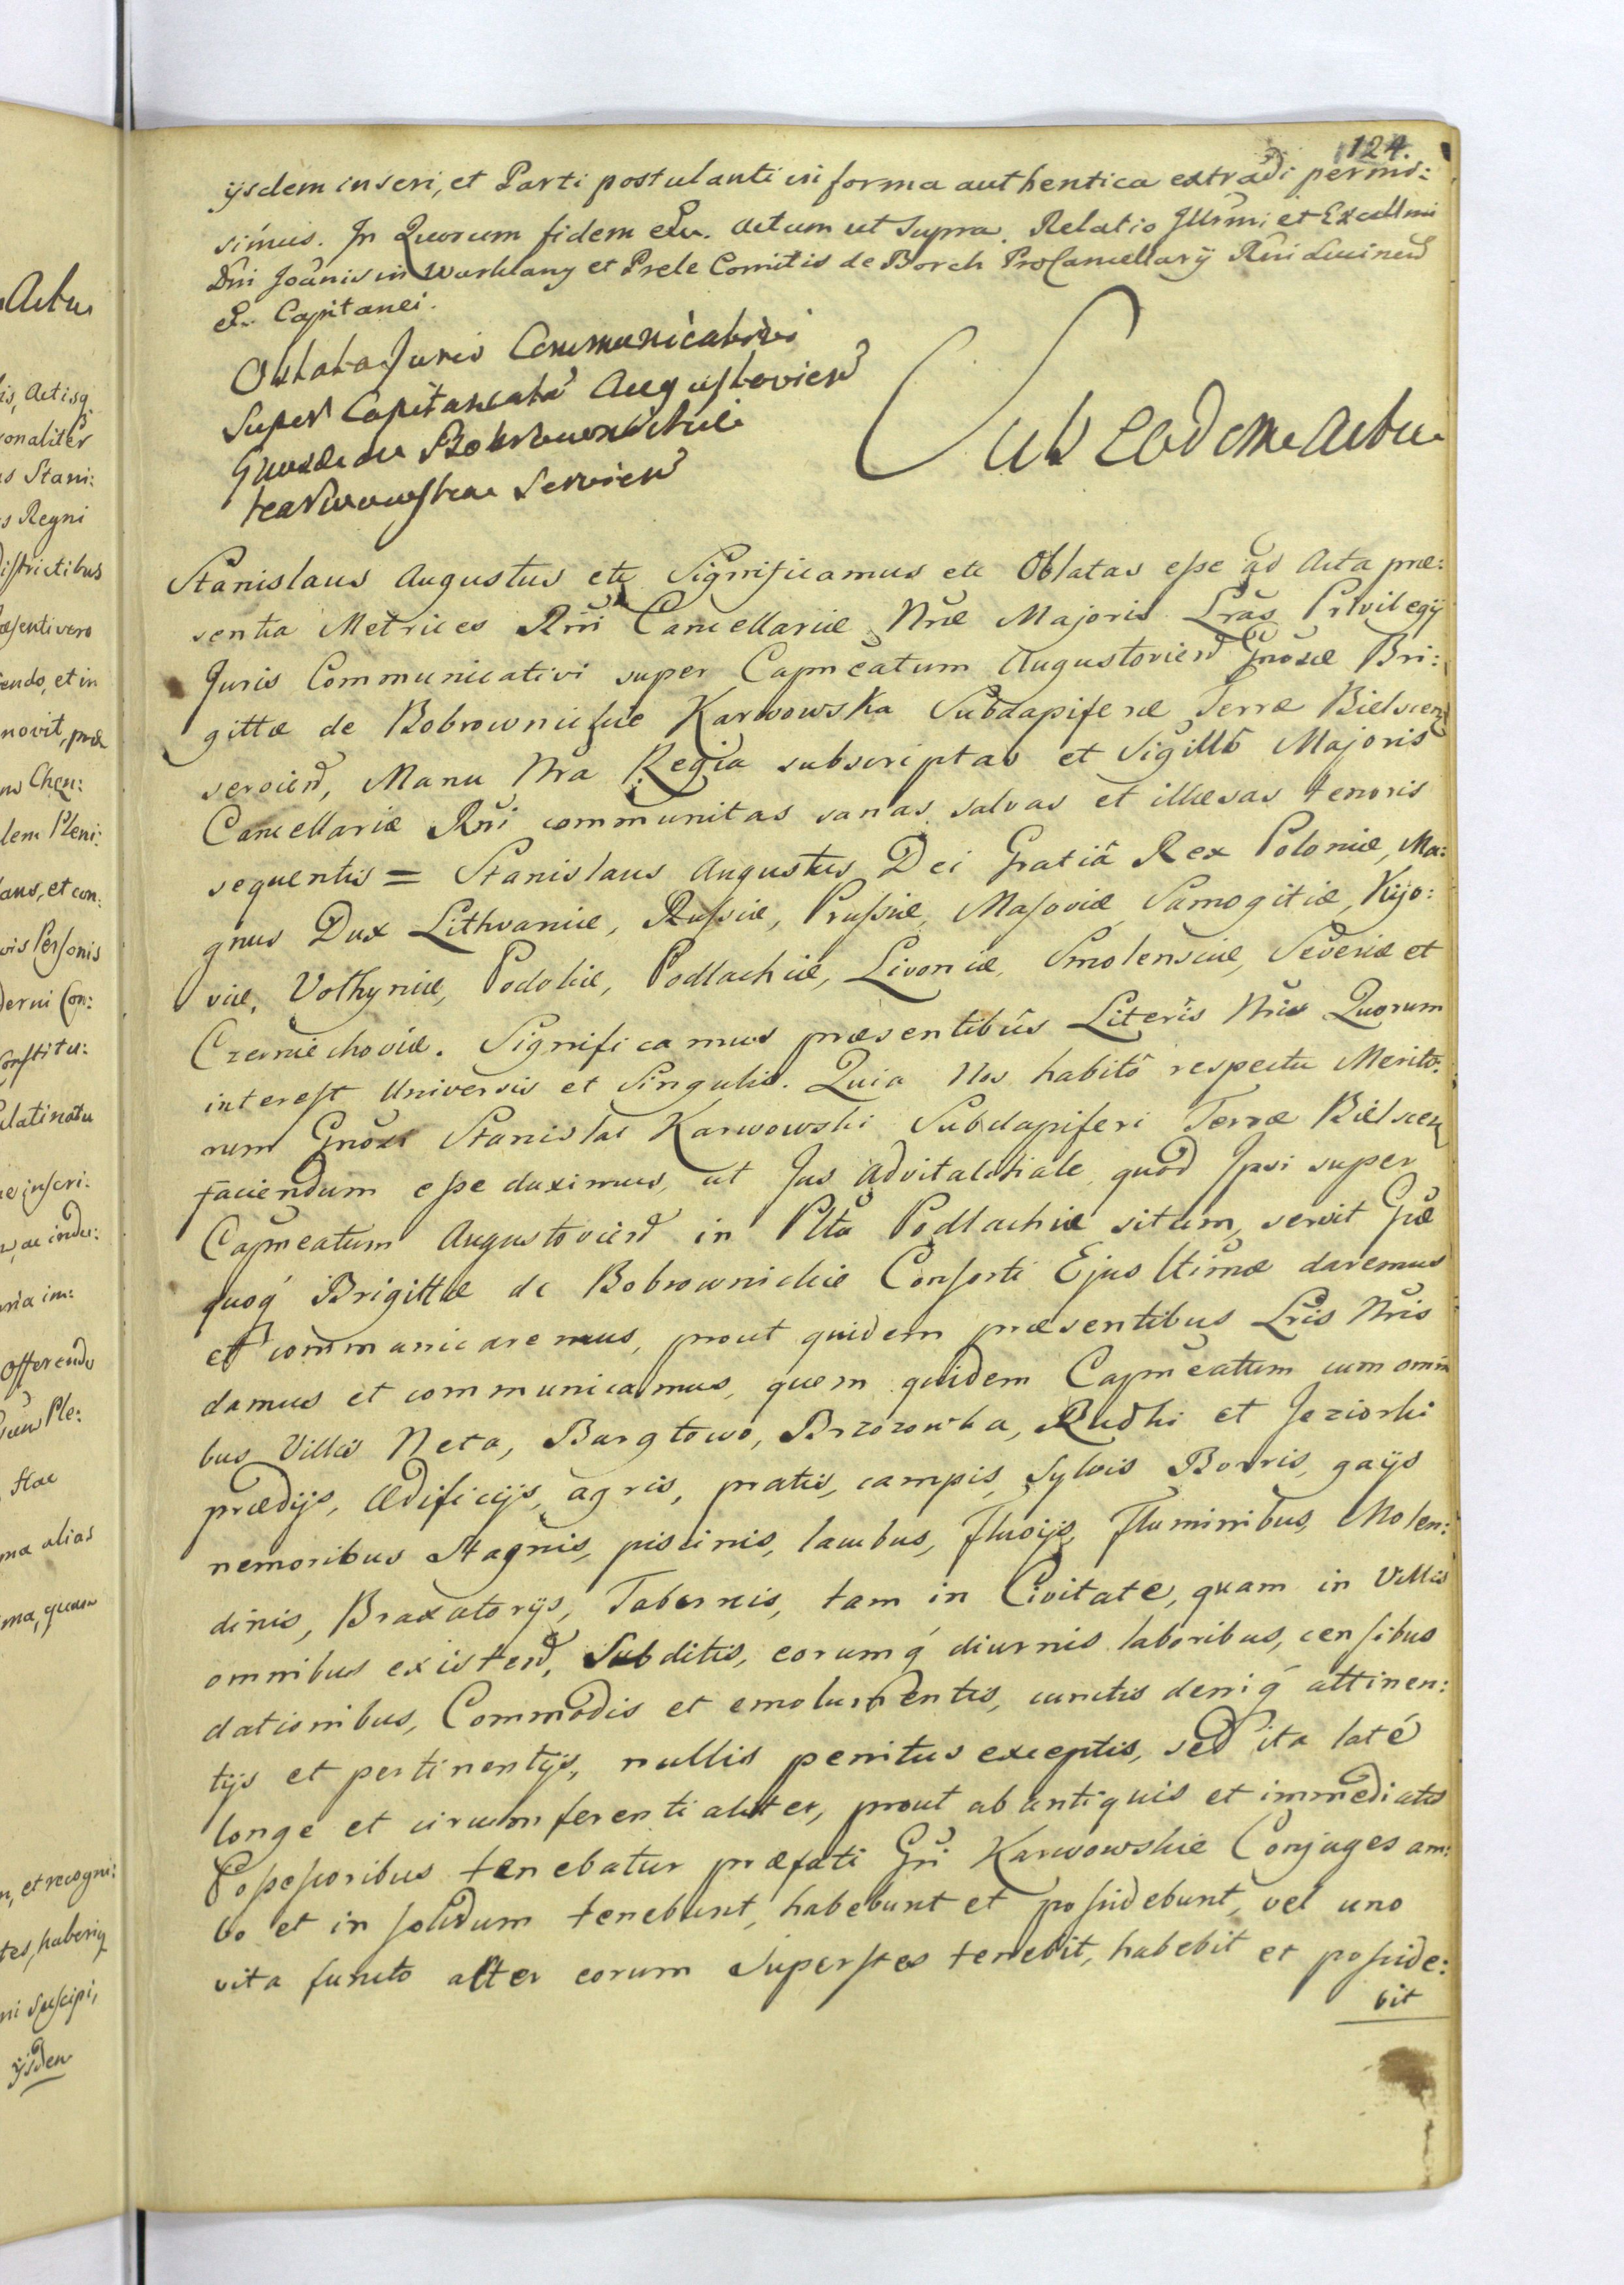 124.
ijsdem inseri, et Parti postulanti in forma authentica extradi permi:
simus. In Quorum fidem etc. Actum ut supra. Relatio Illrmi et Excellmi
Dni Joannis in Warklany et Prele Comitis de Borch ProCancellarij Rni Lucinen
etc. Capitanei.
Oblata Juris Communicativi
super Capitaneatu Augustovien
Gnosae de Bobrownickie
Karwowska servien
Sub eodem Actu
Stanislaus Augustus etc Significamus etc Oblatas esse ad Acta præ:
sentia Metrices Rni Cancellariæ Nræ Majoris Lras Privilegij
Juris Communicativi super Capneatum Augustovien Gnosæ Bri:
gittæ de Bobrownickie Karwowska Subdapiferæ Terræ Bielscen
servien, Manu Nra Regia subscriptas et Sigillo Majoris
Cancellariæ Rni communitas sanas salvas et illæsas tenoris
sequentis = Stanislaus Augustus Dei Gratiâ Rex Poloniæ, Ma:
gnus Dux Lithvaniæ, Russiæ, Prussiæ, Masoviæ Samogitiæ, Kijo:
viæ, Volhyniæ, Podoliæ, Podlachiæ, Livoniæ, Smolensciæ, Severiæ et
Czerniechoviæ. Significamus præsentibus Literis Nris Quorum
interest Universis et Singulis. Quia Nos habitô respectu Merito:
rum Gnosi Stanislai Karwowski Subdapiferi Terræ Bielscen
faciendum esse duximus, ut Jus advitalitiale, quod Ipsi super
Capneatum Augustovien in Pltu Podlachiæ situm, servit Gnæ
quoq́ Brigittæ de Bobrownickie Consorti Ejus ltimæ daremus
et communicaremus, prout quidem præsentibus Lris Nris
damus et communicamus, quem quidem Capneatum cum omni
bus Villis Neta, Bargłowo, Brzozowka, Rudki et Jeziorki
prædijs, Ædificijs, agris, pratis, campis, Sylvis Borris, gaijs
nemoribus Stagnis, piscinis, lacubus, fluvijs, Fluminibus, Molen:
dinis, Braxatorijs, Tabernis, tam in Civitate, quam in Villis
omnibus existen, Subditis, eorumq́ diurnis laboribus, censibus
dationibus, Commodis et emolumentis, cunctis deniq́ attinen:
tijs et pertinentijs, nullis penitus exceptis, sed ita laté
longe et circumferentialiter, prout ab antiquis et immediatis
Possessoribus tenebatur præfati Gni Karwowskie Conjuges am:
bo et in solidum tenebunt, habebunt et possidebunt, vel uno
vita functo alter eorum Superstes tenebit, habebit et posside:
bit